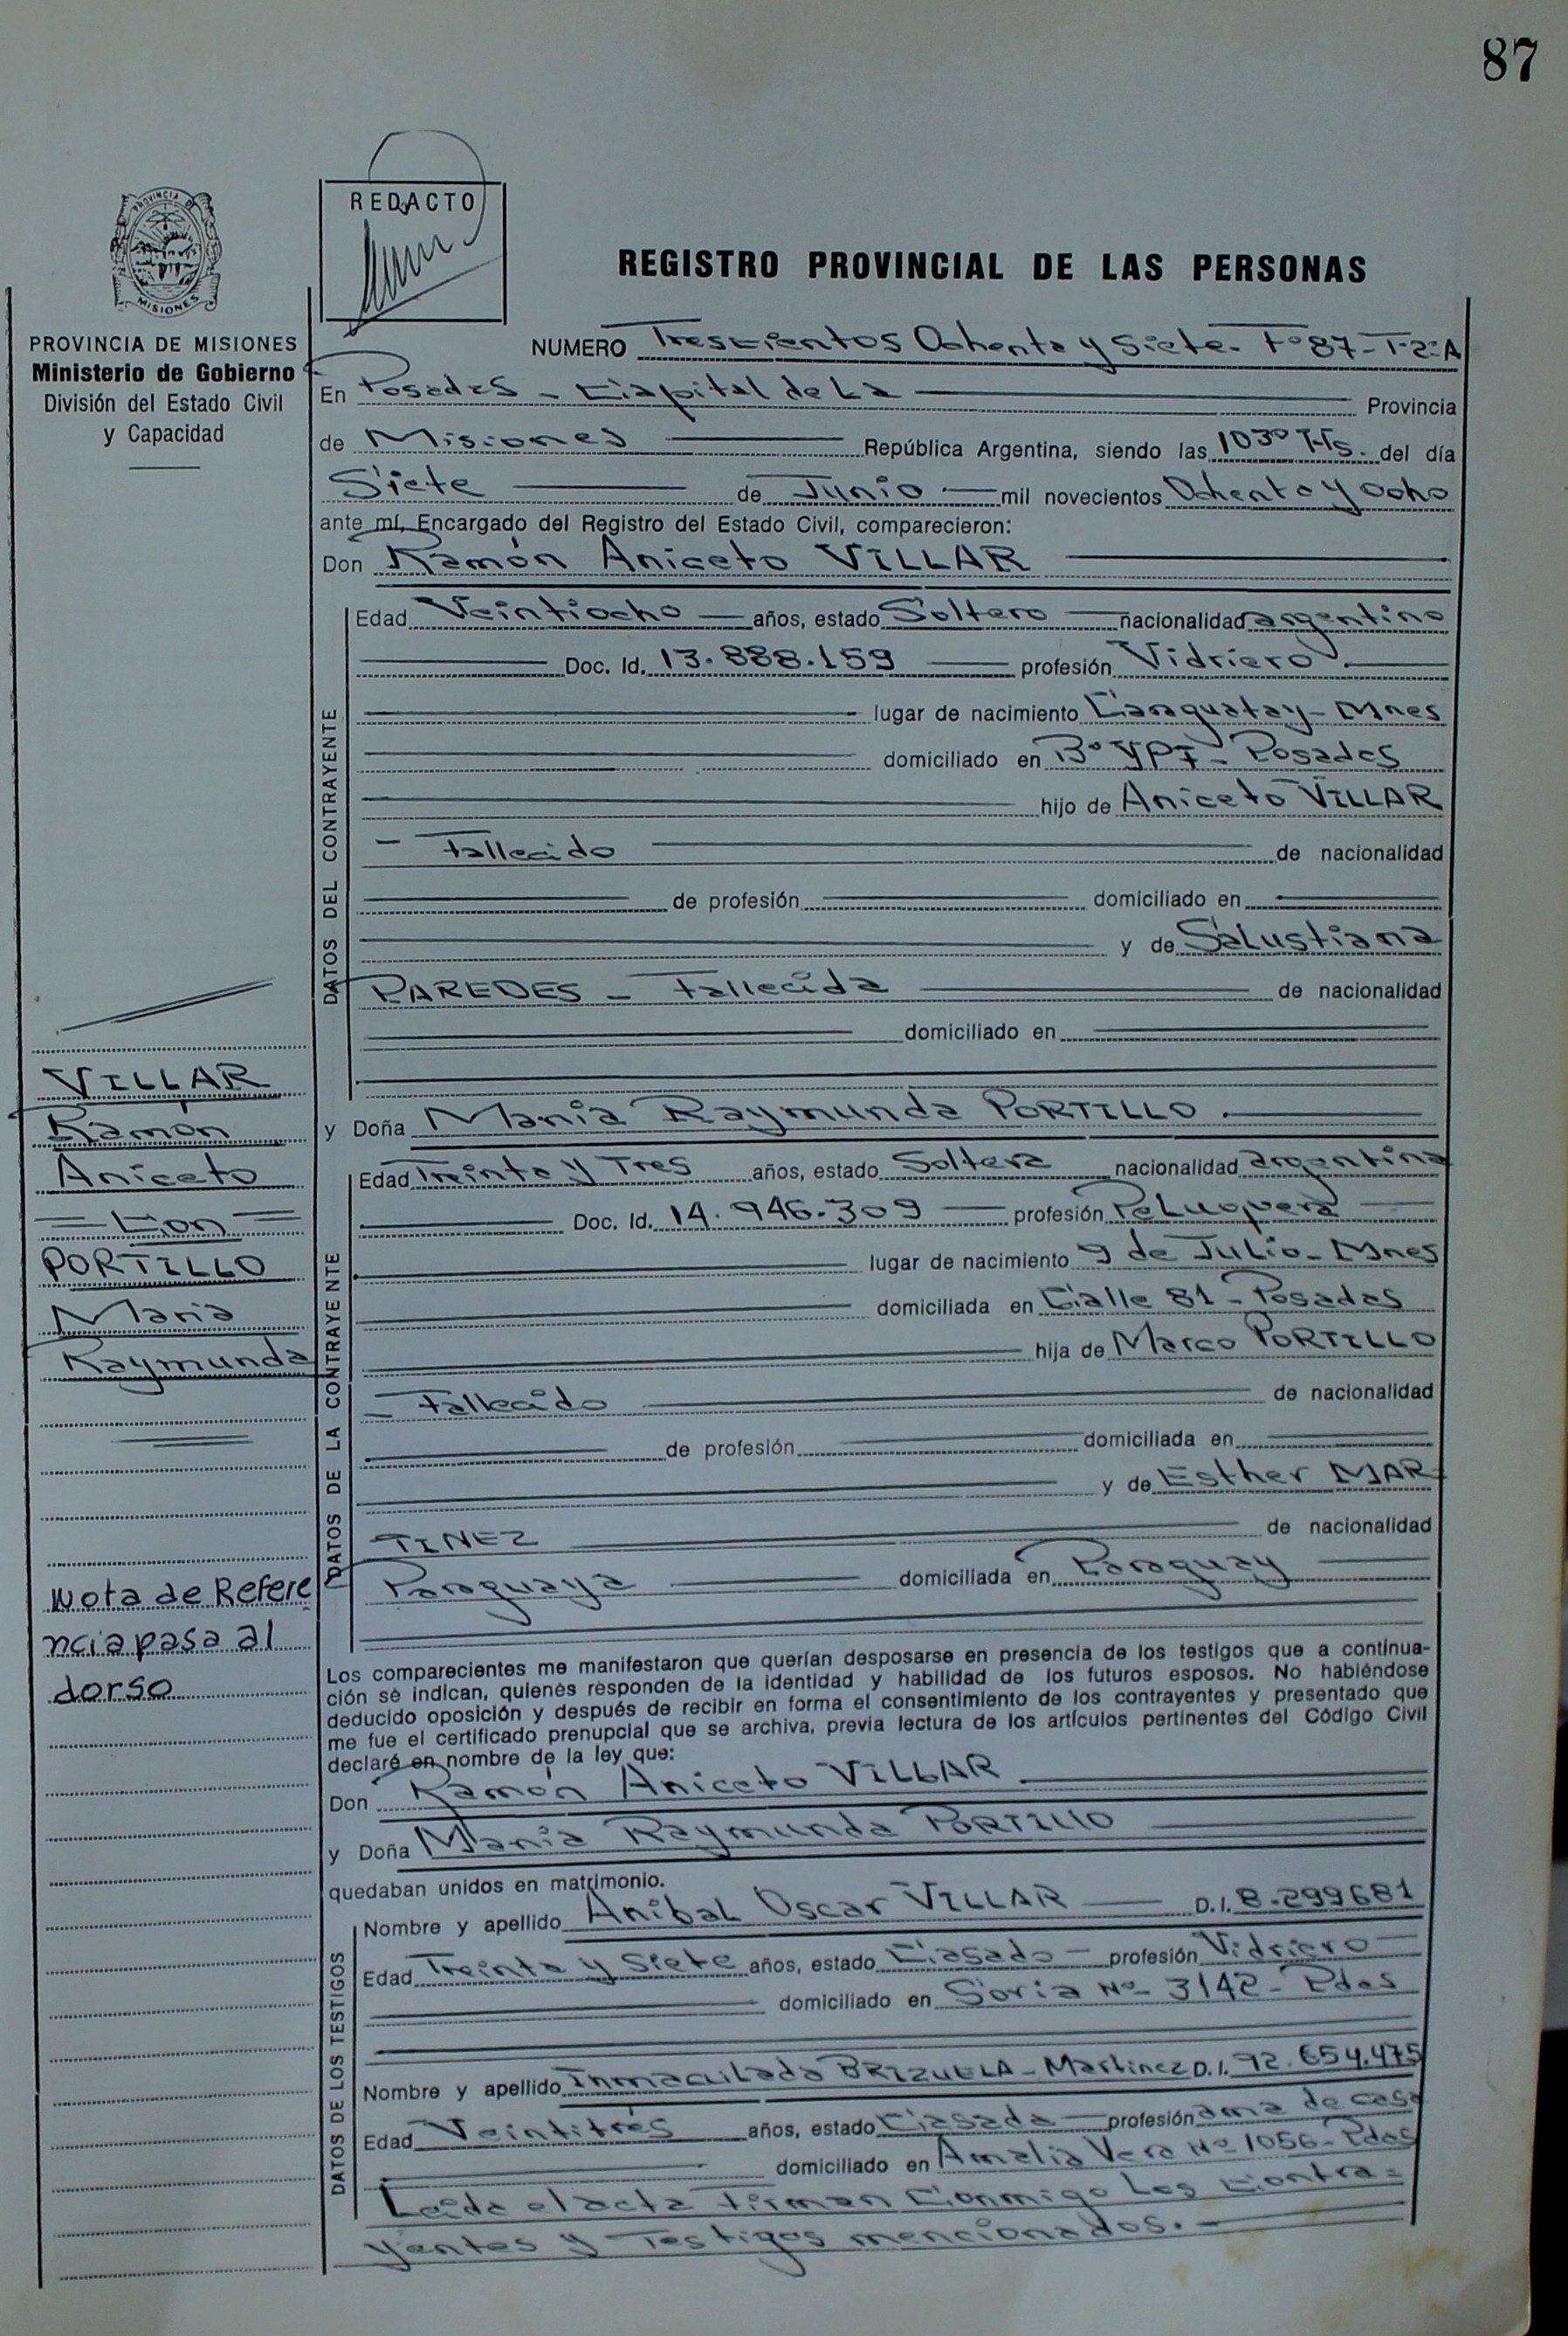 87
PROVINCIA DE
MISIONES
REDACTO
REGISTRO PROVINCIAL DE LAS PERSONAS
PROVINCIA DE MISIONES
Ministerio de Gobierno
División del Estado Civil
y Capacidad
NUMERO Trescientos Ochenta y Siete - Fº 87 - T-2º A
En Posadas - Capital de La Provincia
de Misiones República Argentina, siendo las 1030 Hs. del día
Siete de Junio mil novecientos Ochenta y Ocho
ante mí, Encargado del Registro del Estado Civil, comparecieron:
Don Ramón Aniceto VILLAR
DATOS DEL CONTRAYENTE
Edad Veintiocho años, estado Soltero nacionalidad argentino
Doc. Id. 13.888.159 profesión Vidriero
lugar de nacimiento Caraguatay - Mnes
domiciliado en Bº YPF - Posadas
hijo de Aniceto VILLAR
- Fallecido de nacionalidad
de profesión domiciliado en
y de Salustiana
PAREDES - Fallecida de nacionalidad
domiciliado en
y Doña María Raymunda PORTILLO
DATOS DE LA CONTRAYENTE
Edad Treinta y Tres años, estado Soltera nacionalidad argentina
Doc. Id. 14.946.309 profesión Peluquera
lugar de nacimiento 9 de Julio - Mnes
domiciliada en Calle 81 - Posadas
hija de Marco PORTILLO
- Fallecido de nacionalidad
de profesión domiciliada en
y de Esther MAR-
TINEZ de nacionalidad
Paraguaya domiciliada en Paraguay
VILLAR
Ramón
Aniceto
= Con =
PORTILLO
María
Raymunda
Nota de Refere
ncia pasa al
dorso
Los comparecientes me manifestaron que querían desposarse en presencia de los testigos que a continua-
ción se indican, quienes responden de la identidad y habilidad de los futuros esposos. No habiéndose
deducido oposición y después de recibir en forma el consentimiento de los contrayentes y presentado que
me fue el certificado prenupcial que se archiva, previa lectura de los artículos pertinentes del Código Civil
declaré en nombre de la ley que:
Don Ramón Aniceto VILLAR
y Doña María Raymunda PORTILLO
quedaban unidos en matrimonio.
DATOS DE LOS TESTIGOS
Nombre y apellido Anibal Oscar VILLAR D.I. 8.299681
Edad Treinta y Siete años, estado Casado - profesión Vidriero
domiciliado en Soria Nº 3142 - Pdas
Nombre y apellido Inmaculada BRIZUELA - Martinez D.I. 92.654.475
Edad Veintitrés años, estado Casada profesión ama de casa
domiciliado en Amalia Vera Nº 1056 - Pdas
Leída el acta Firman Conmigo Los Contra=
yentes y Testigos mencionados.-